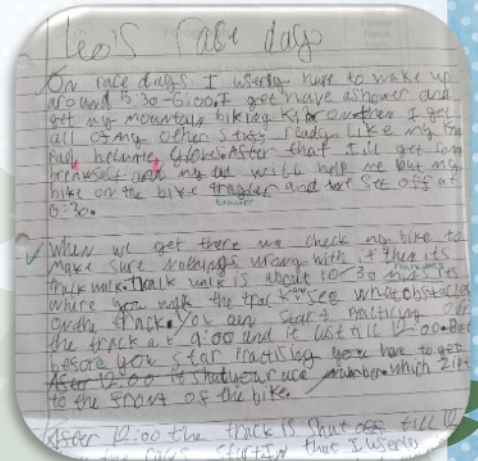 Leo's Rase days
On race days I userly have to wake up
around 5:30-6:00. I get have a shower and
get my mountain biking kit on then I get
all of my other stuff ready like my
Pads, helmite, Gloves. After that I'll get some
breakfast and my dad will help me put my
bike on the bike and we set off at
6:30.
When we get there we check my bike to
Make sure nothings wrong with it then its
track walk. walk is about 10-30 its
minutes
where you walk the track see what obstacles
on the track. You can start Practising on
the track at 9:00 and it last till 12:00. But
before you star Practising you have to get
After 12:00 it shut your race number which
to the front of the bike.
After 12:00 the track is shut off till 12
the starting that I userly